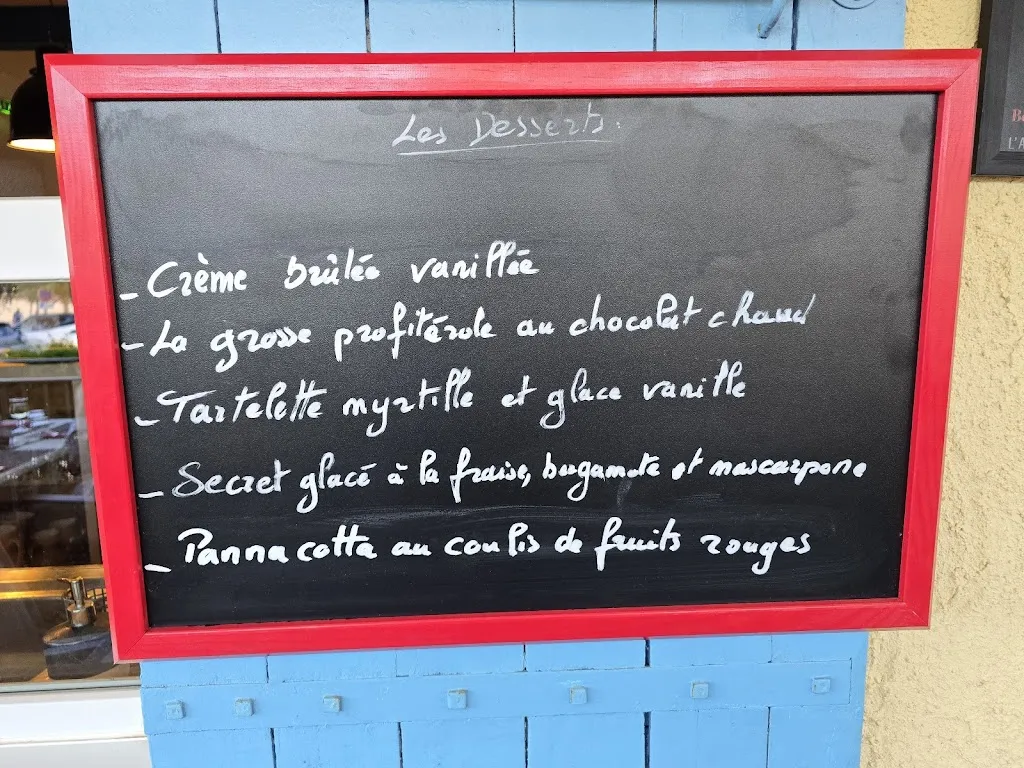 Les Desserts:
- Crème brûlée vanillée
- La grosse profitérole au chocolat chaud
- Tartelette myrtille et glace vanille
- Secret glacé à la fraise, bergamote et mascarpone
- Panna cotta au coulis de fruits rouges
L'A